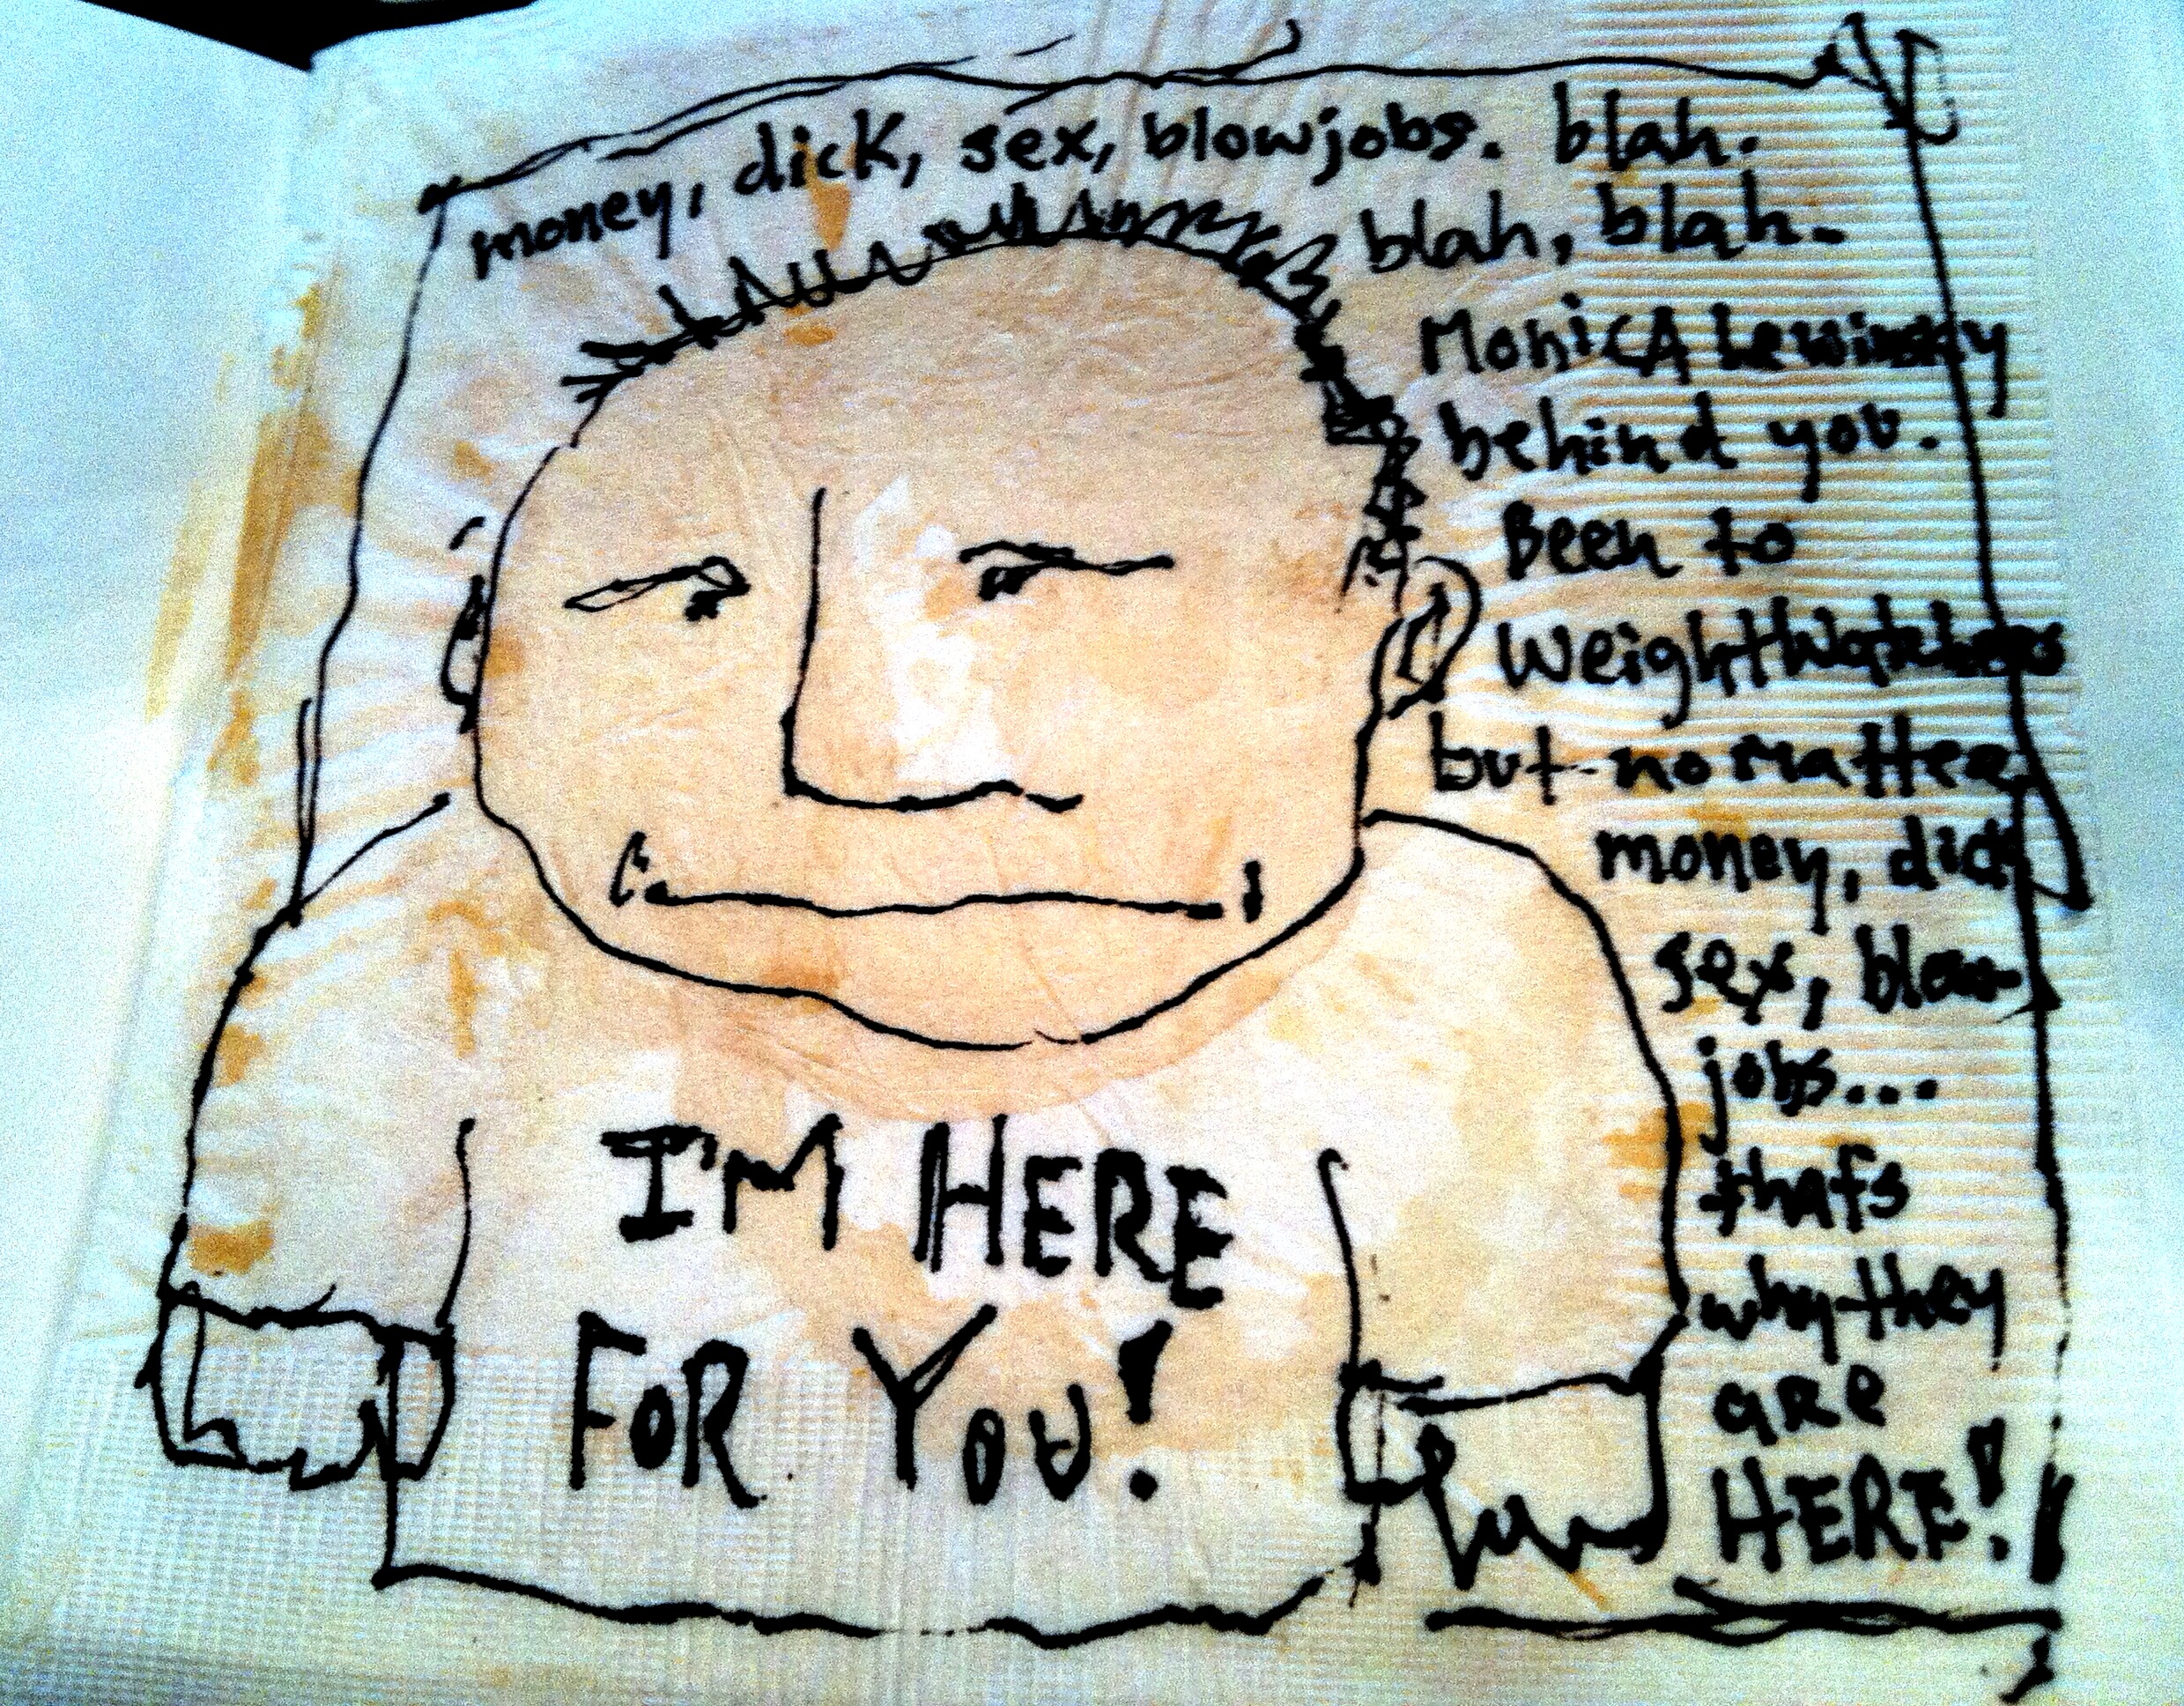 money, dick, sex, blowjobs. blah.
blah, blah.
MonicA Lewinsky
behind you.
Been to
WeightWatchers
but no matter
money, dick
sex, blow
jobs...
that's
why they
are
HERE!
I'M HERE
FOR YOU!